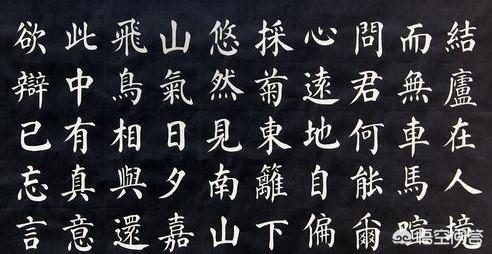 結廬在人境
而無車馬喧
問君何能爾
心遠地自偏
採菊東籬下
悠然見南山
山氣日夕嘉
飛鳥相與還
此中有真意
欲辯已忘言
悟空问答